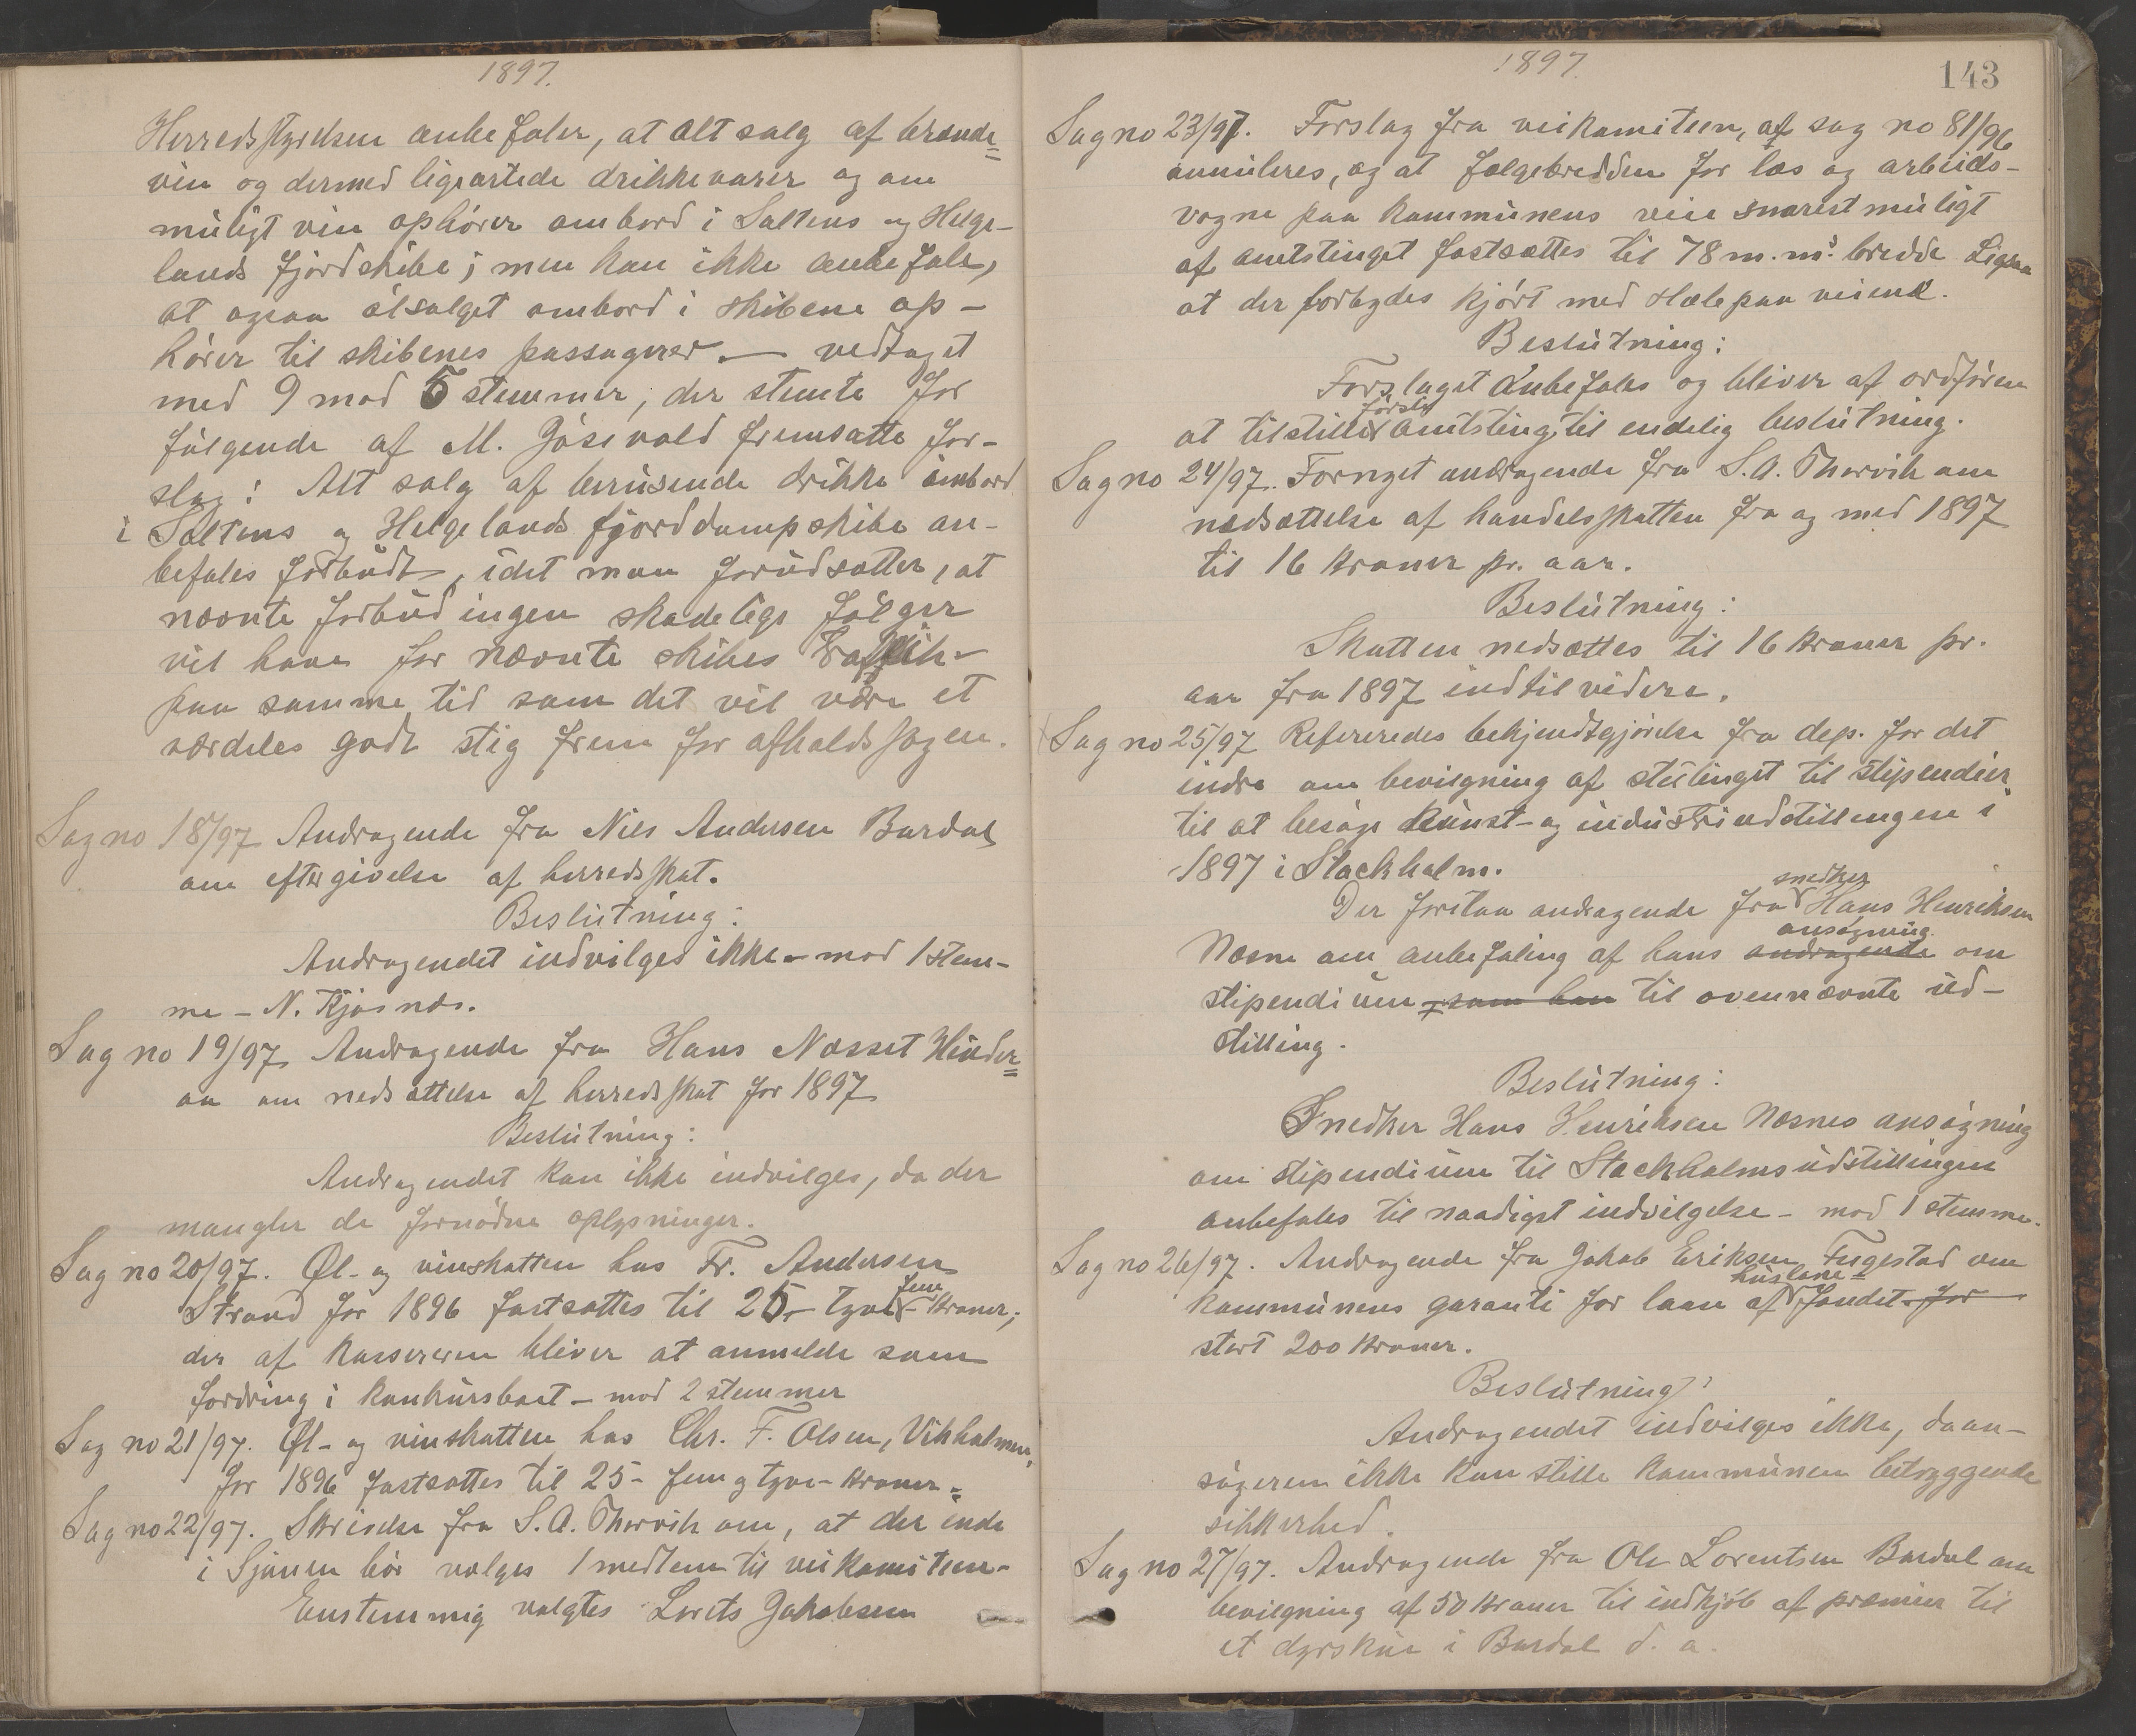 1897.
Herredsstyrelsen anbefaler, at alt salg af brænde=
vin og dermed ligeartede drikkevarer og om
muligt vin ophører ombord i Saltens og Helge-
lands fjordskibe; men kan ikke anbefale,
at ogsaa ølsalget ombord i skibene op-
hører til skibenes passagerer. — vedtaget
med 9 mod 5 stemmer, der stemte for
følgende af M. Jøsevold fremsatte for-
slag: Alt salg af berusende drikke ombord
i Saltens og Helgelands fjorddampskibe an-
befales forbudt, idet man forudsætter, at
nævnte forbud ingen skadelige følger
vil have for nævnte skibes trafik-
paa samme tid som det vil være et
særdeles godt stig frem for afholdssagen.
Sag no 18/97 Andragende fra Nils Andersen Bardal
om eftergivelse af herredsskat.
Beslutning:
Andragendet indvilges ikke - mod 1 stem-
me - N. Kjæsnæs.
Sag no 19/97 Andragende fra Hans Næsset Hinder=
aa om nedsættelse af herredsskat for 1897
Beslutning:
Andragendet kan ikke indvilges, da der
mangler de fornødne oplysninger.
Sag no 20/97. Øl- og vinskatten hos Fr. Andersen
Strand for 1896 fastsættes til 25 - tyve fem - kroner;
der af kassereren bliver at anmelde som
fordring i konkursboet - mod 2 stemmer
Sag no 21/97. Øl- og vinskatten hos Chr. F. Olsen, Vikholmen,
for 1896 fastsættes til 25 - fem og tyve - kroner.
Sag no 22/97. Skrivelse fra S. A. Thorvik om, at der inde
i Sjønen bør vælges 1 medlem til veikomiteen -
Enstemmig valgtes Lorets Jakobsen
1897.
143
Sag no 23/97. Forslag fra veikomiteen, af sag no 81/96
annuleres, og at fælgebredden for læs og arbeids-
vogne paa kommunens veie snarest muligt
af amtstinget fastsættes til 78 m.m.s bredde Ligesaa
at der forbydes kjørt med slæle paa veiene.
Beslutning:
Forslaget anbefales og bliver af ordføren
at tilstille førstk amtsting til endelig beslutning.
Sag no 24/97. Fornyet andragende fra S. A. Thorvik om
nedsættelse af handelsskatten fra og med 1897
til 16 kroner pr. aar.
Beslutning:
Skatten nedsættes til 16 kroner pr.
aar fra 1897 indtil videre.
Sag no 25/97 Refereredes bekjendtgjørelse fra dep. for det
indre om bevilgning af stortinget til stipendier
til at besøge kunst- og industriudstillingen i
1897 i Stockholm.
Der forelaa andragende fra snedker Hans Henriksen
Næsne om anbefaling af hans andragende ansøgning om
stipendium som han til ovennævnte ud-
stilling.
Beslutning:
Snedker Hans Henriksen Næsnes ansøgning
om stipendium til Stockholmsudstillingen
anbefales til naadigst indvilgelse - mod 1 stemme.
Sag no 26/97. Andragende fra Jakob Eriksen Fugestad om
kommunens garanti for laan af huslaane- fondet for
stort 200 kroner.
Beslutning:
Andragendet indvilges ikke, da an-
søgeren ikke kan stille kommunen betryggende
sikkerhed.
Sag no 27/97. Andragende fra Ole Lorentsen Bardal om
bevilgning af 50 kroner til indkjøb af præmier til
et dyrskue i Bardal d. a.